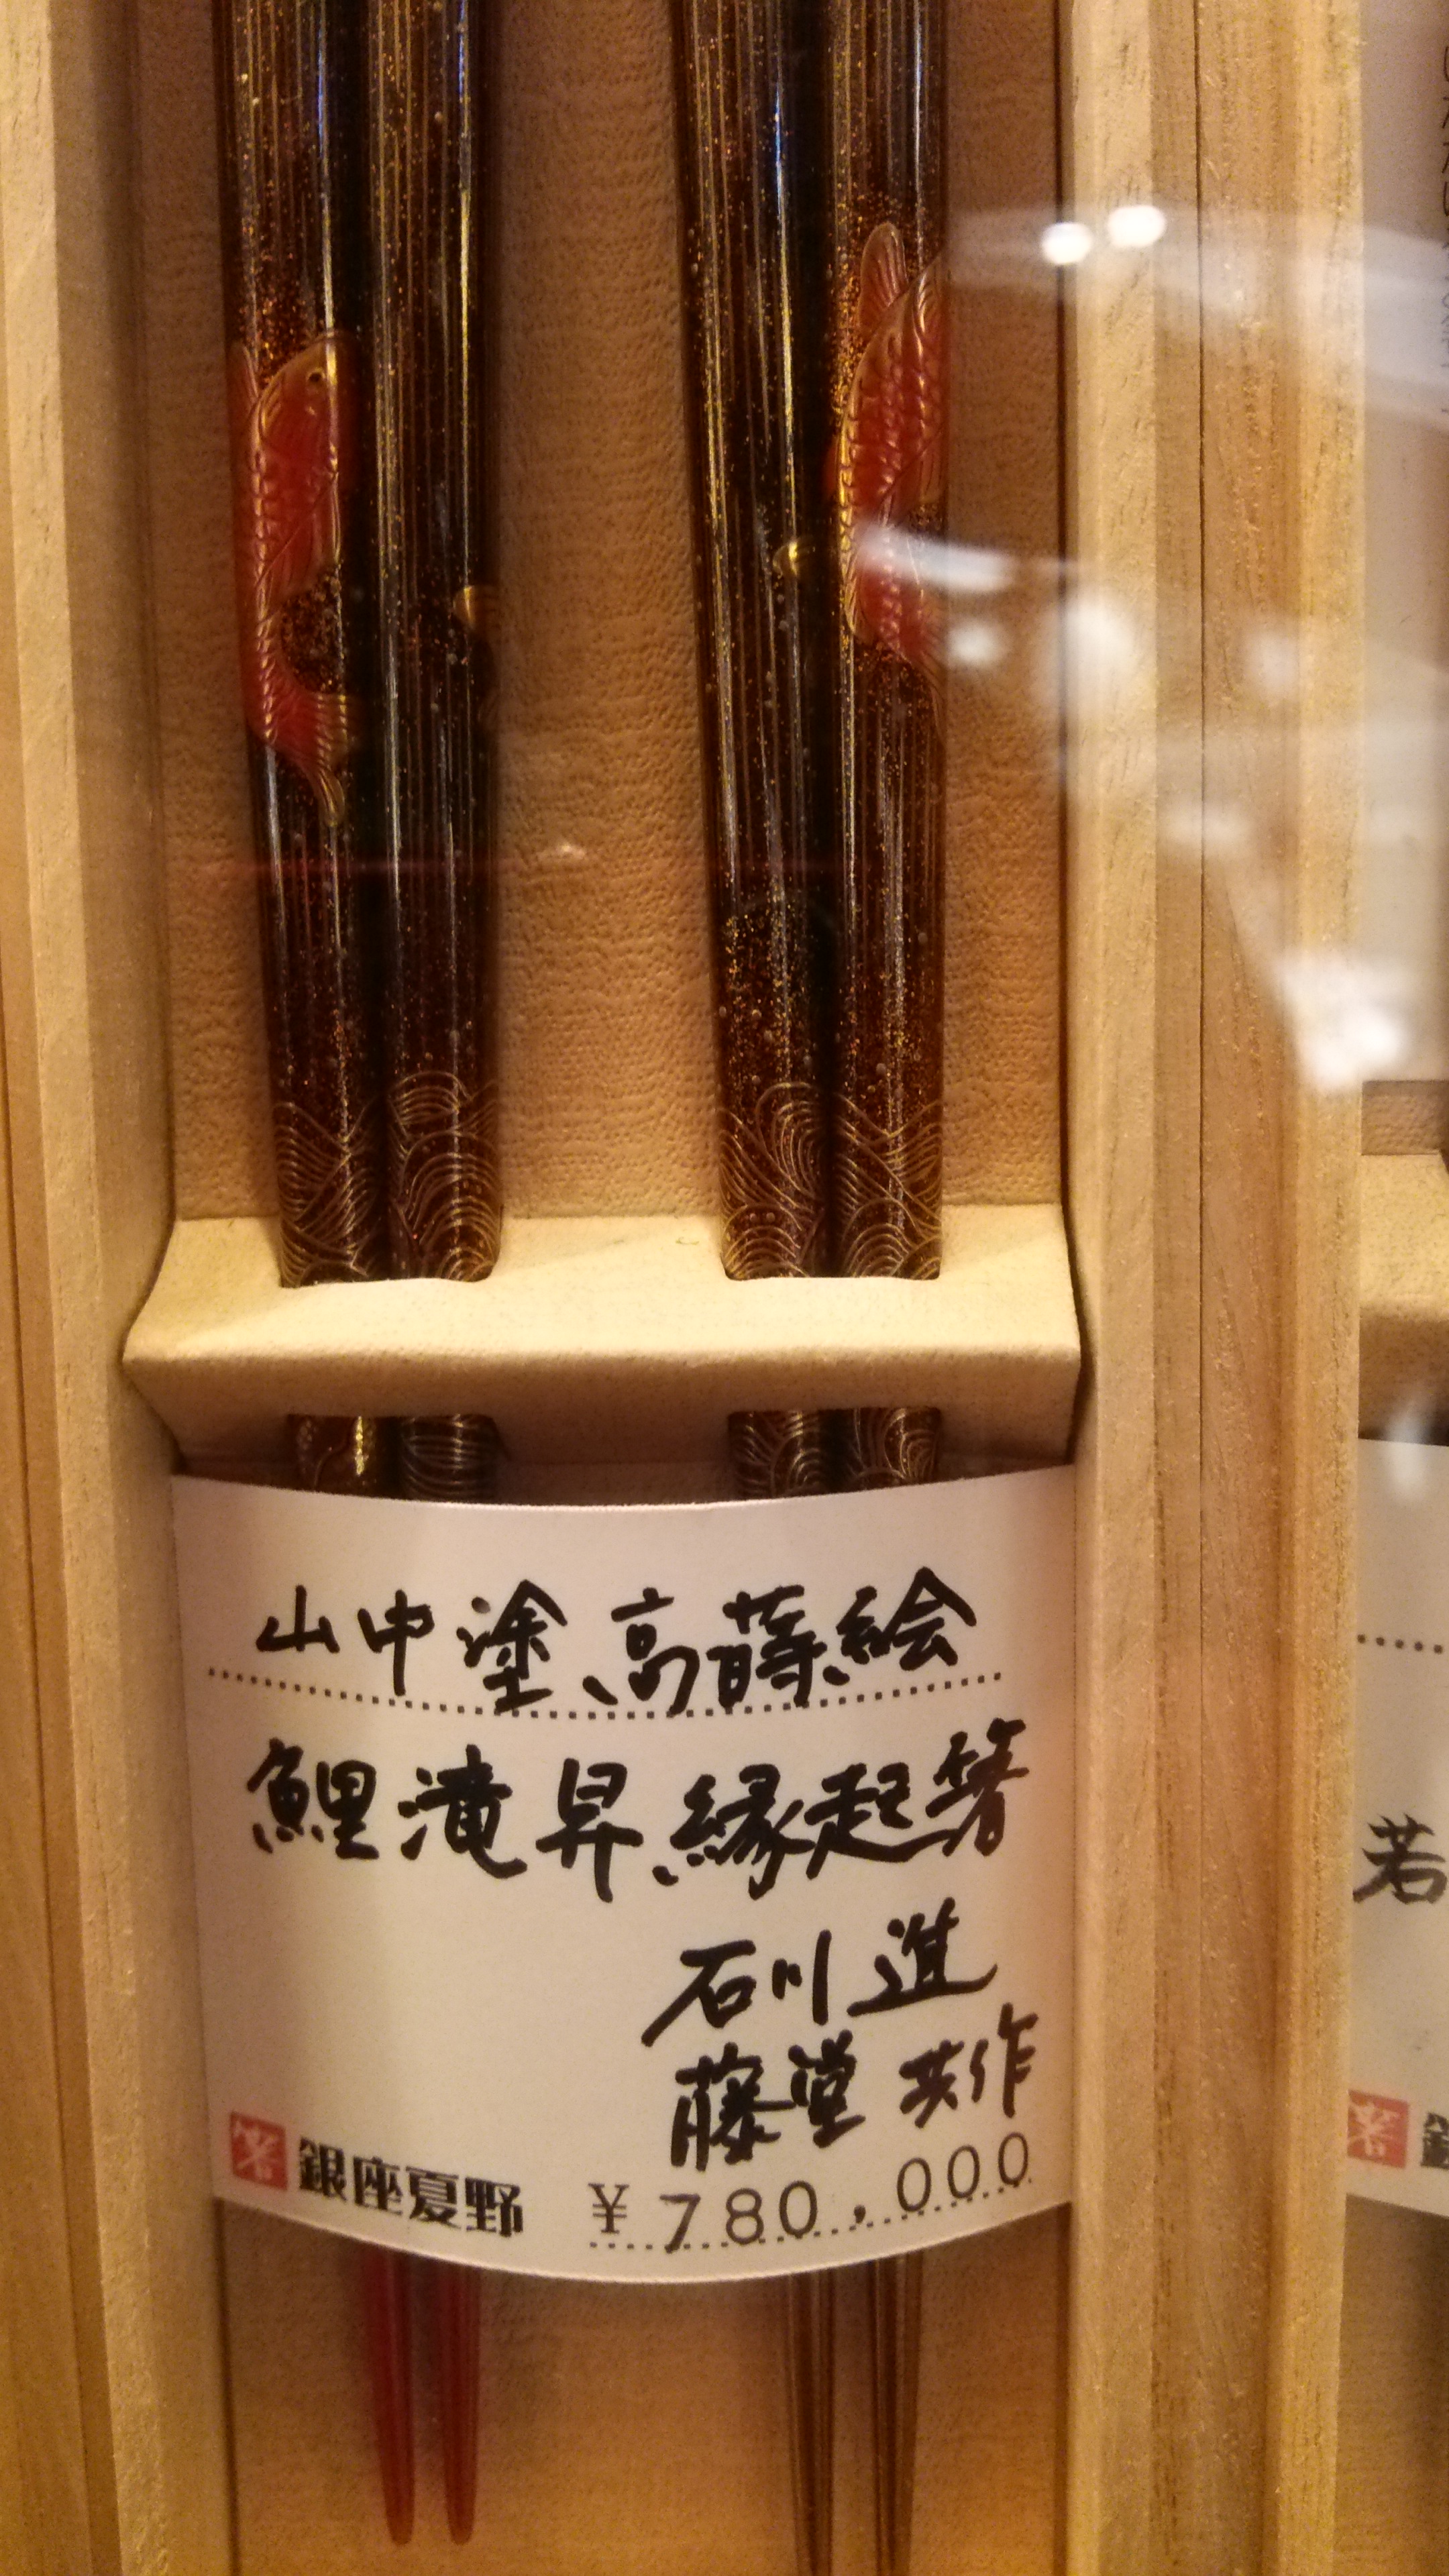 山中塗、高蒔絵
鯉滝昇縁起箸
石川進
藤堂 共作
箸 銀座夏野 ¥780,000
若